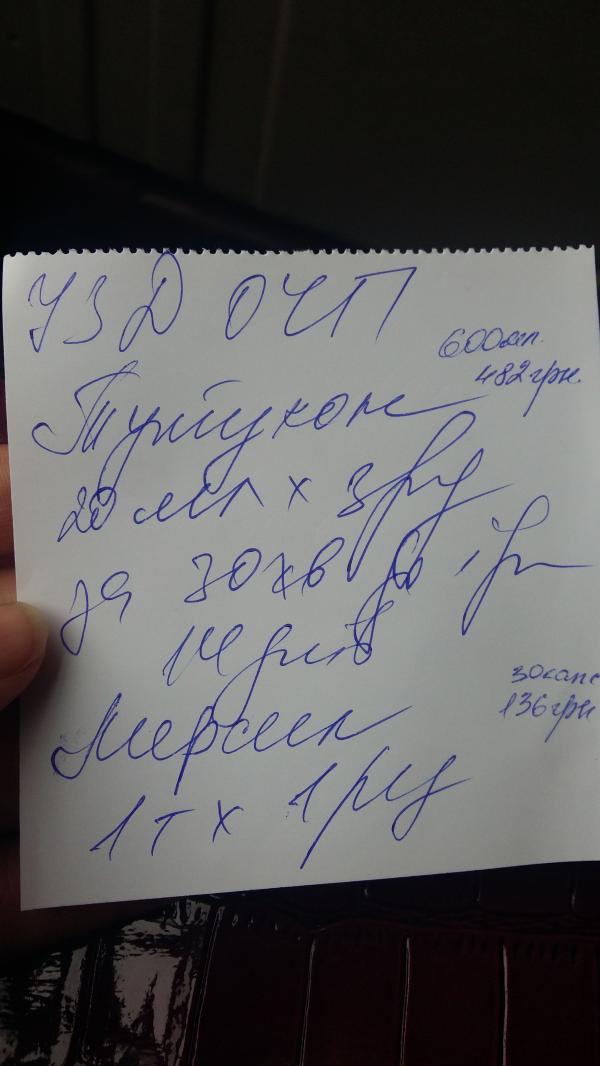 УЗД ОЧП
600мл.
482грн.
Тутукон
20 мл х 3р/д
за 30хв до їжі
14 днів
30капс
136грн
1т х 1р/д